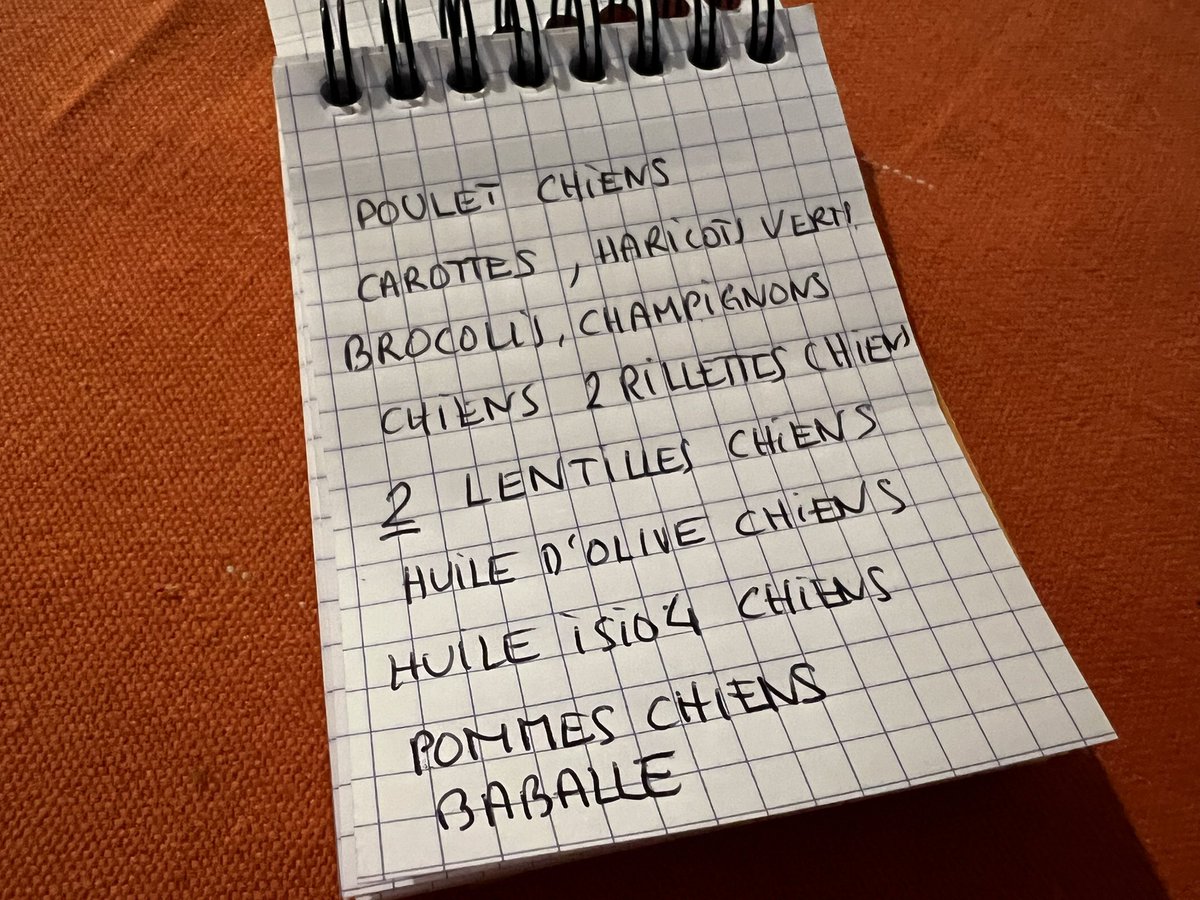 POULET CHIENS
CAROTTES, HARICOTS VERTS.
BROCOLIS, CHAMPIGNONS
CHIENS 2 RILLETTES CHIENS
2 LENTILLES CHIENS
HUILE D'OLIVE CHIENS
HUILE ISIO4 CHIENS
POMMES CHIENS
BABALLE